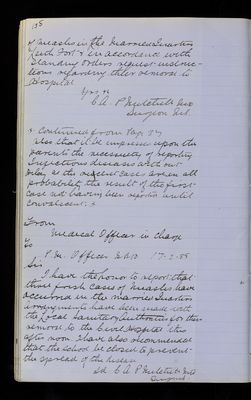 138
of measles in the Married Quarters
South Fort & in accordance with
Standing Orders request instruc-
tions regarding their removal to
Hospital
Surgeon
+ Continued from Page
also that it be impressed upon the
parents the necessity of reporting
Infectious diseases at the out-
as the present cases are in all
probability the result of the first
case not having been reported until
convalescent. +
From
Medical Officer in charge
To
P.M. Officer 17.2.88
Sir
I have the honor to report that
three fresh cases of measles have
occurred in the Married Quarters
arrangements have been made with
the Local Sanitary Authorities for their
removal to the Civil Hospital this
after noon I have also recommended
that the school be closed to prevent
the spread of the disease
Surgeon